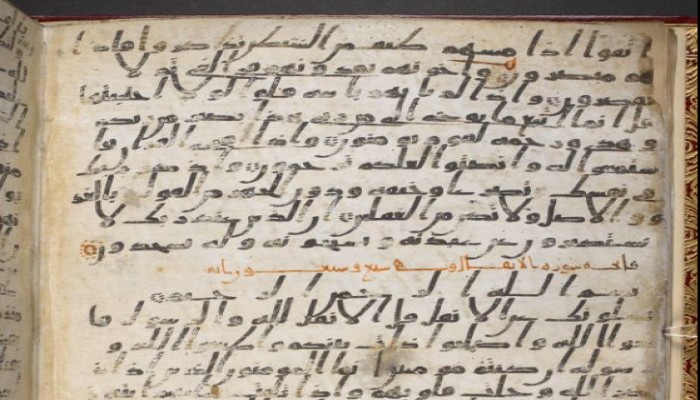 ا تقوا اذا مسهم طيف من الشيطن تذكروا فاذا
هم مبصرون واخونهم يمدونهم في الغي ثم لا
يقصرون واذا لم تاتهم باية قالوا لولا اجتبيتها
قل انما اتبع ما يوحى الي من ربي هذا بصير من ربكم
وهدى ورحمة لقوم يومنون واذا قرى القران فا
ستمعوا له وانصتوا لعلكم ترحمون واذكر ربك
في نفسك تضرعا وخيفة ودون الجهر من القول بالغد
و والاصل ولا تكن من الغفلين ان الذين عند ربك لا
يستكبرون عن عبدته ويسبحونه وله يسجدون
فاتحة سورة الانفال وهي سبع وسبعون اية
بسم الله الرحمن الرحيم
يسلونك عن الانفل قل الانفل لله والرسول فا
تقوا الله واصلحوا ذات بينكم واطيعوا الله و
رسوله ان كنتم مومنين انما المومنون الذين اذا ذ
كر الله وجلت قلوبهم واذا تليت عليهم ايته